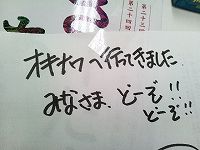 第二十三回
第二十四回
オキナワへ行ってきました
みなさま、どーぞ!!
どーぞ!!